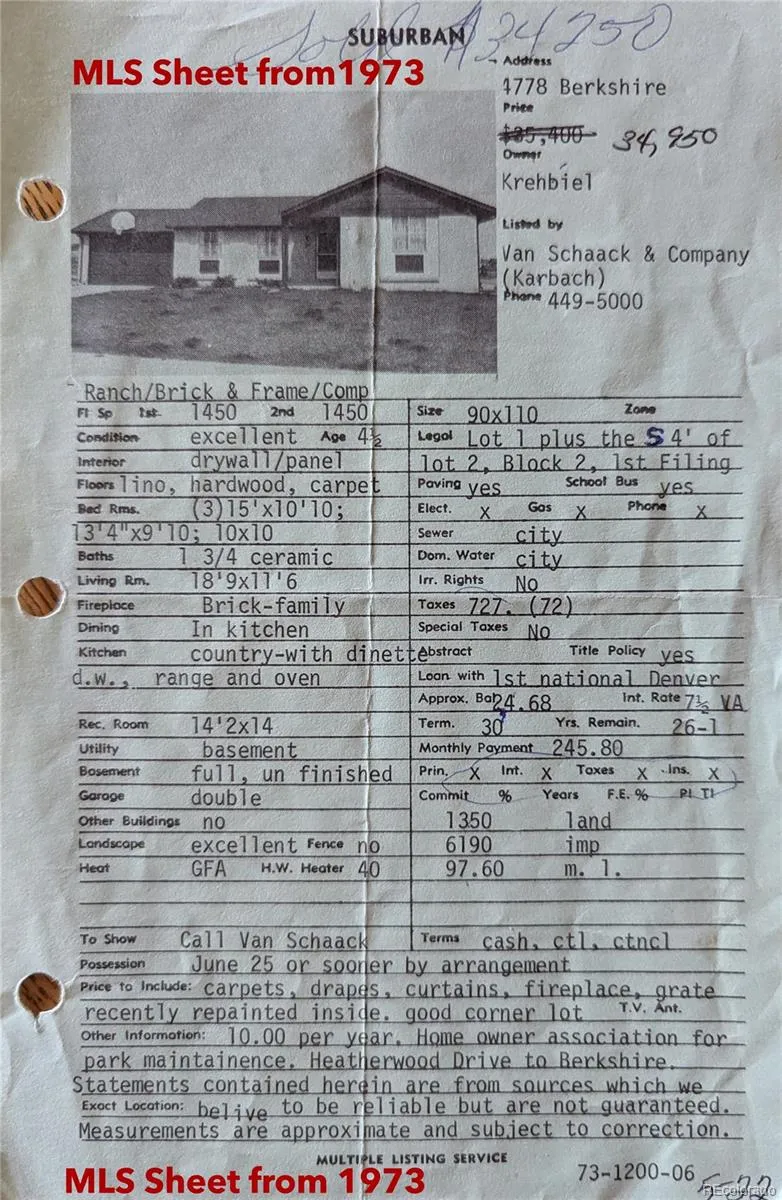 Sold $34250
SUBURBAN
MLS Sheet from1973
Address
4778 Berkshire
Price
$35,400 34,950
Owner
Krehbiel
Listed by
Van Schaack & Company
(Karbach)
Phone 449-5000
Ranch/Brick & Frame/Comp
Fl Sp 1st 1450 2nd 1450
Condition excellent Age 4½
Interior drywall/panel
Floors lino, hardwood, carpet
Bed Rms. (3)15'x10'10;
13'4"x9'10; 10x10
Baths 1 3/4 ceramic
Living Rm. 18'9x11'6
Fireplace Brick-family
Dining In kitchen
Kitchen country-with dinette
d.w., range and oven
Rec. Room 14'2x14
Utility basement
Basement full, un finished
Garage double
Other Buildings no
Landscape excellent Fence no
Heat GFA H.W. Heater 40
Size 90x110 Zone
Legal Lot 1 plus the S 4' of
lot 2, Block 2, 1st Filing
Paving yes School Bus yes
Elect. x Gas x Phone x
Sewer city
Dom. Water city
Irr. Rights No
Taxes 727. (72)
Special Taxes No
Abstract Title Policy yes
Loan with 1st national Denver
Approx. Bal 24.68 Int. Rate 7½ VA
Term. 30 Yrs. Remain. 26-1
Monthly Payment 245.80
Prin. x Int. x Taxes x Ins. x
Commit % Years F.E. % PI TI
1350 land
6190 imp
97.60 m. l.
To Show Call Van Schaack
Terms cash, ctl, ctncl
Possession June 25 or sooner by arrangement
Price to Include: carpets, drapes, curtains, fireplace, grate
recently repainted inside. good corner lot T.V. Ant.
Other Information: 10.00 per year. Home owner association for
park maintainence. Heatherwood Drive to Berkshire.
Statements contained herein are from sources which we
Exact Location: belive to be reliable but are not guaranteed.
Measurements are approximate and subject to correction.
MULTIPLE LISTING SERVICE
MLS Sheet from 1973
73-1200-06
5-22
REcolorado